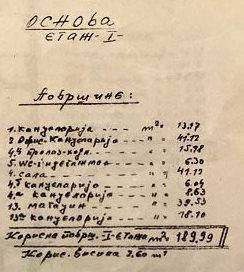 ОСНОВА
ЕТАЖ-I-
ПОВРШИНЕ:
1. Канцеларија --- м²= 13.97
2. Офис. Канцеларија -- " 41.12
Пролаз-ходн. -- " 15.98
5. WC-и -- " 6.30
4. Сала --- " 41.12
Канцеларија -- " 6.04
Канцеларија " 7.63
13. Магацин -- " 39.53
Канцеларија -- " 18.10
Корисна површ. I-Етажа м² 189,99
Корис. висина 2,60 м¹